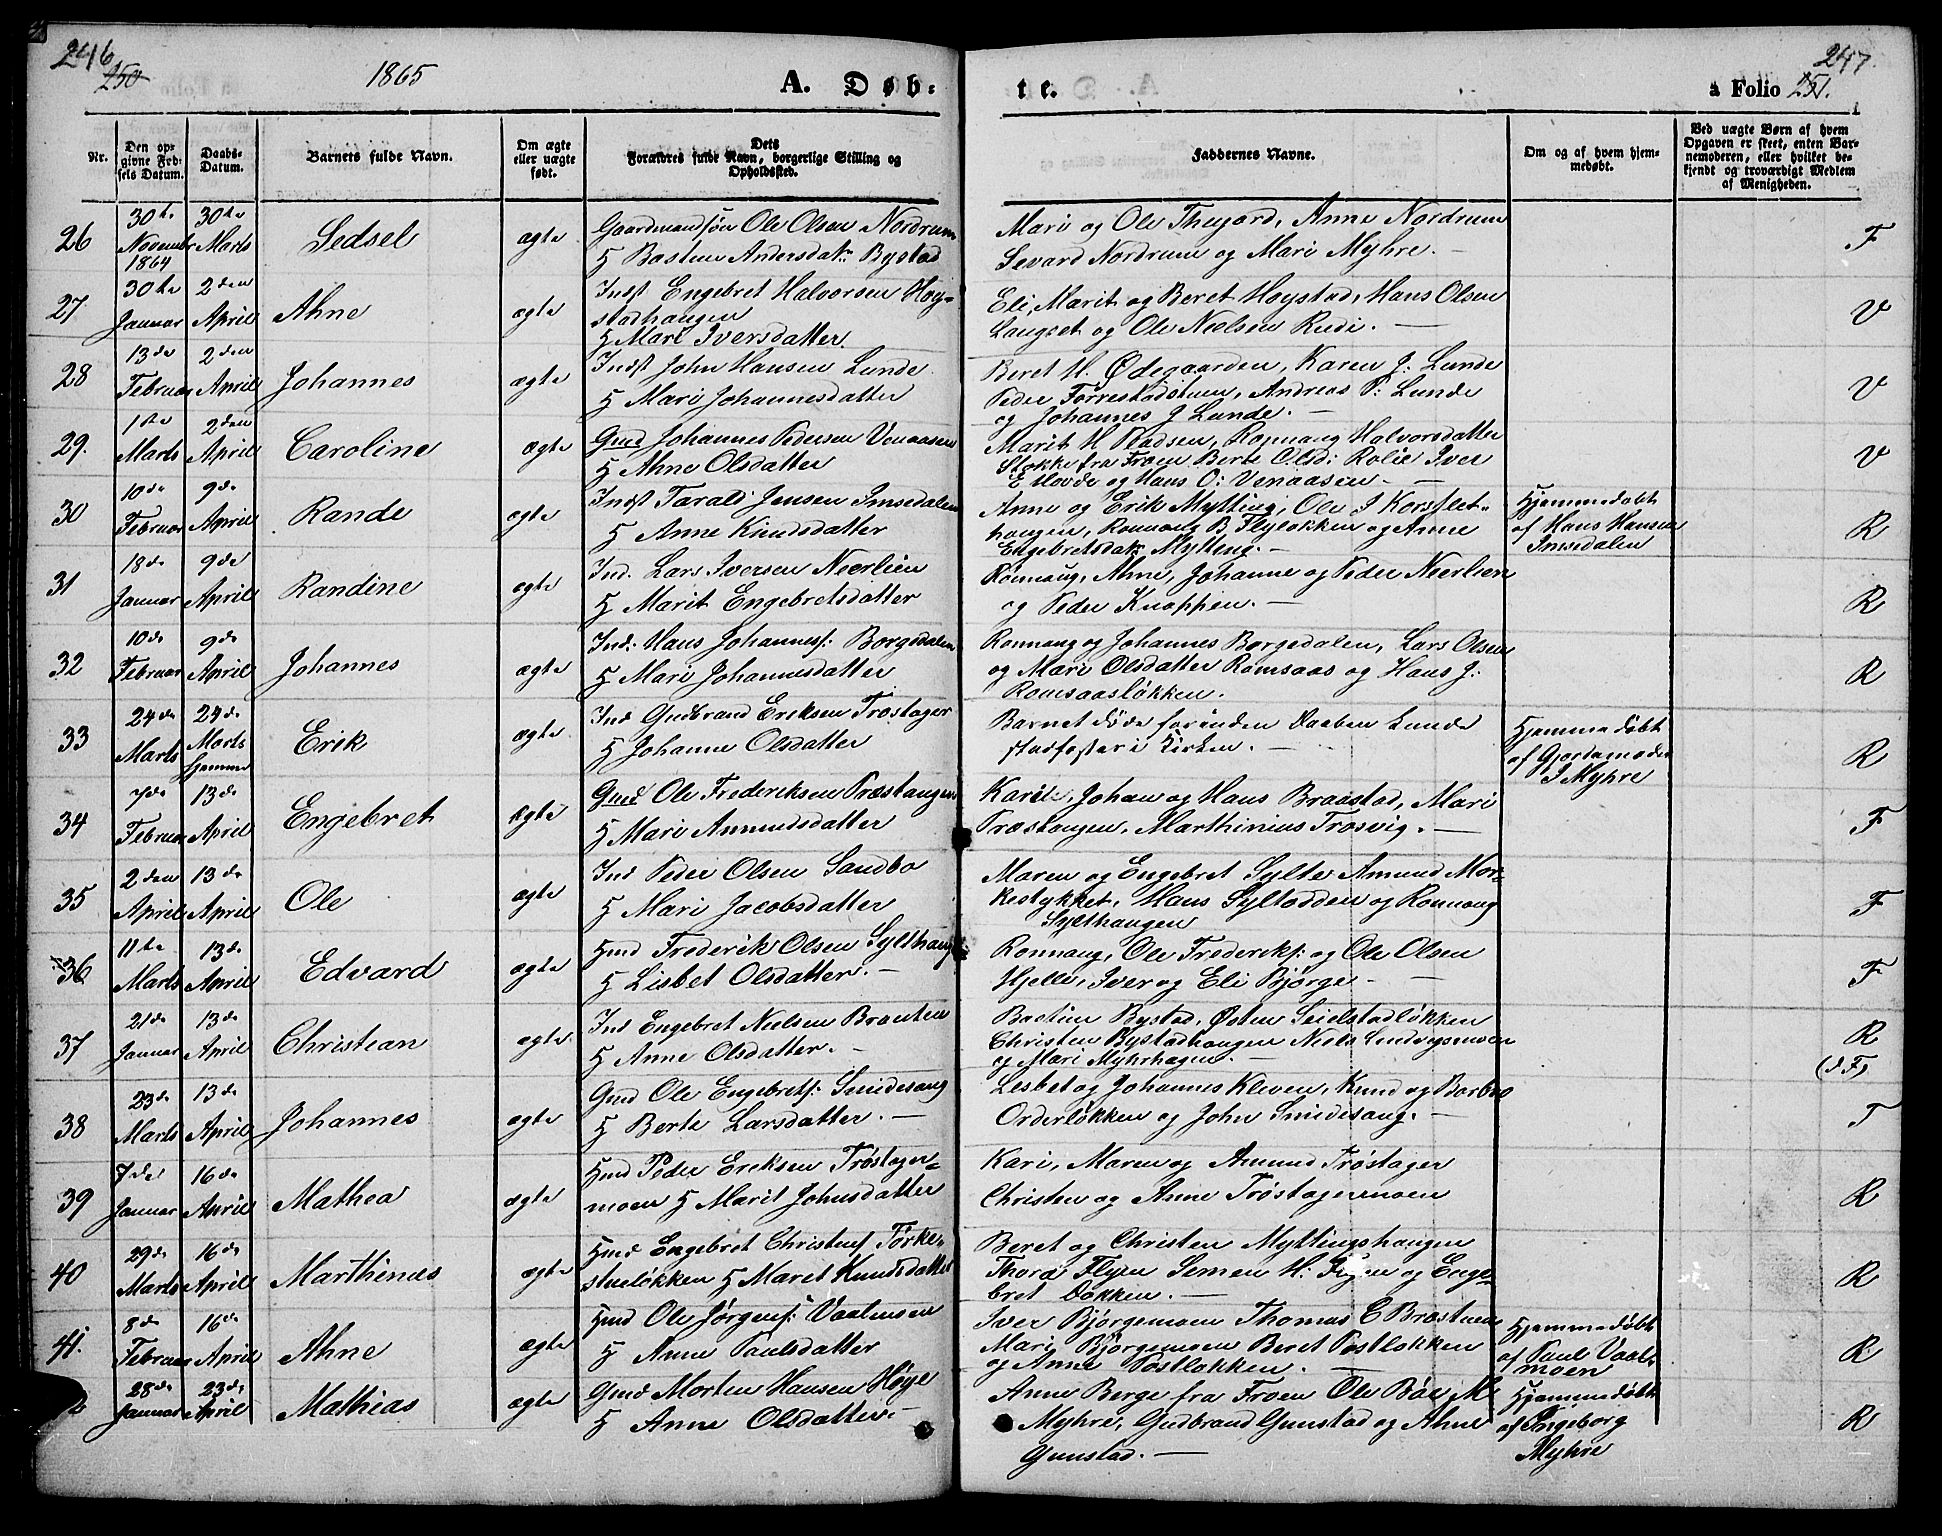 246
250
1865
A. Døb:
te.
247
à Folio 251.
Nr.
Den op-
givne Fød-
sels Datum.
Daabs-
Datum.
Barnets fulde Navn.
Om ægte
eller uægte
født.
Dets
Forældres fulde Navn, borgerlige Stilling og
Opholdssted.
Faddernes Navne.
Om og af hvem hjem-
medøbt.
Ved uægte Børn af hvem
Opgaven er skeet, enten Bar-
nemoderen, eller hvilket be-
kjendt og troværdigt Medlem
af Menigheden.
26 30te Novembr 1864 30te Marts Sedsel ægte Gaardmandsøn Ole Olsen Nordrum
H Bastine Andersdatr Bystad
Mari og Ole Thejord, Anne Nordrum
Sevard Nordrum og Mari Myhre. F
27. 30te Januar 2den April Ahne ægte Indst Engebret Halvorsen Høy-
stadhaugen
H Mari Iversdatter.
Eli, Marit og Beret Høystad, Hans Olsen
Langset og Ole Nielsen Rudi. V
28 13de Februar 2den April Johannes ægte Indst John Hansen Lunde
H Mari Johannesdatter
Beret H. Ødegaarden, Karen J. Lunde
Peder Forrestadstuen, Andreas P. Lunde
og Johannes J Lunde. V
29. 1te Marts 2den April Caroline ægte Gmd Johannes Pedersen Venaasen
H Ahne Olsdatter
Marit H Madsen, Romnaug Halvorsdatter
Stokke fra Froen Berte Olsd: Rolie Iver
E Hovde og Hans O: Venaasen V
30 10de Februar 9de April Rande ægte Indst Tarald Jensen Imsedalen
H Anne Knudsdatter
Anne og Erik Mytting, Ole J Korsflet-
haugen, Romnaug B Flyløkken og Anne
Engebretsdatr Mytting.
Hjemmedøbt
af Hans Hansen
Imsedalen R
31 18de Januar 9de April Randine ægte Ind. Lars Iversen Neerlien
H Marit Engebretsdatter
Ronnaug, Ahne, Johanne og Peder Neerlien
og Peder Knappen. R
32 10de Februar 9de April Johannes ægte Ind: Hans Johannesf: Borgedalen
H Mari Johannesdatter
Ronnaug og Johannes Borgedalen, Lars Olsen
og Mari Olsdatter Romsaas og Hans J:
Romsaasløkken. R
33 24de Marts 24de Marts hjemme Erik ægte Ind Gudbrand Eriksen Trøstager
H Johanne Olsdatter
Barnet døde forinden Daaben kunde
stadfæstes i Kirken.
Hjemmedøbt
af Gjordemoder
I Myhre R
34 7de Februar 13de April Engebret ægte Gmd Ole Frederiksen Præstangen
H Mari Amundsdatter
Karit, Johan og Hans Braastad, Mari
Præstangen, Marthinius Trosvig. F
35 2den April 13de April Ole ægte Ind Peder Olsen Sandbo
H Mari Jacobsdatter
Maren og Engebret Sylte Amund Mor-
kestykket, Hans Syltodden og Ronnaug
Sylthaugen F
36 11te Marts 13de April Edvard ægte Hmd Frederik Olsen Sylthaug
H Lisbet Olsdatter.
Ronnaug, Ole Frederiksf: og Ole Olsen
Hjelle, Iver og Eli Bjørge F
37 21de Januar 13de April Christian ægte Ind Engebret Nielsen Brauten
H Anne Olsdatter.
Bastine Bystad, Østen Seielstadløkken
Christen Bystadhaugen Niels Lundvigsmoen
og Mari Myhrhagen. R
(d F)
38 23de Marts 13de April Johannes ægte Gmd Ole Engebretsf: Smidesang
H Berte Larsdatter.
Lesbet og Johannes Kleven, Knud og Barbro
Orderløkken og John Smidesang. T
39 7de Januar 16de April Mathea ægte Hmd Peder Eriksen Trøstager-
moen H Marit Johnsdatter
Kari, Maren og Amund Trøstager
Christen og Anne Trøstagermoen R
40 29de Marts 16de April Marthinus ægte Hmd Engebret Christenf Tørke-
stueløkken H Maret Knudsdatter
Beret og Christen Myttingshaugen
Thora Flyen Semen H: og Enge-
bret Døkken. R
41. 8de Februar 16de April Ahne ægte Hmd Ole Jørgenf: Vaalmoen
H Anne Paulsdatter
Iver Bjørgemoen Thomas C Bræstuen
Mari Bjørgemoen Beret Postløkken
og Anne Postløkken.
Hjemmedøbt
af Paul Vaal-
moen R
2 28de Januar 23de April Mathias ægte Gmd Morten Hansen Høye
H Anne Olsdatter
Anne Berge fra Froen Ole Bøe M
Myhre, Gudbrand Gunstad og Ahne
Gunstad.
Hjemmedøbt
af Ingeborg
Myhre R